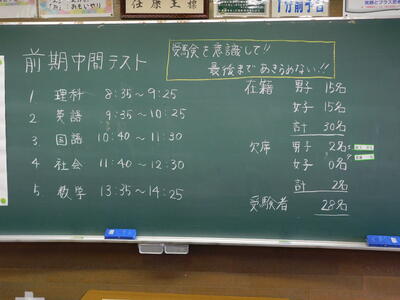 前期中間テスト
1 理科 8:35〜9:25
2 英語 9:35〜10:25
3 国語 10:40〜11:30
4 社会 11:40〜12:30
5 数学 13:35〜14:25
受験を意識して!!
最後まであきらめない!!
在籍 男子 15名
女子 15名
計 30名
欠席 男子 2名
女子 0名
計 2名
受験者 28名